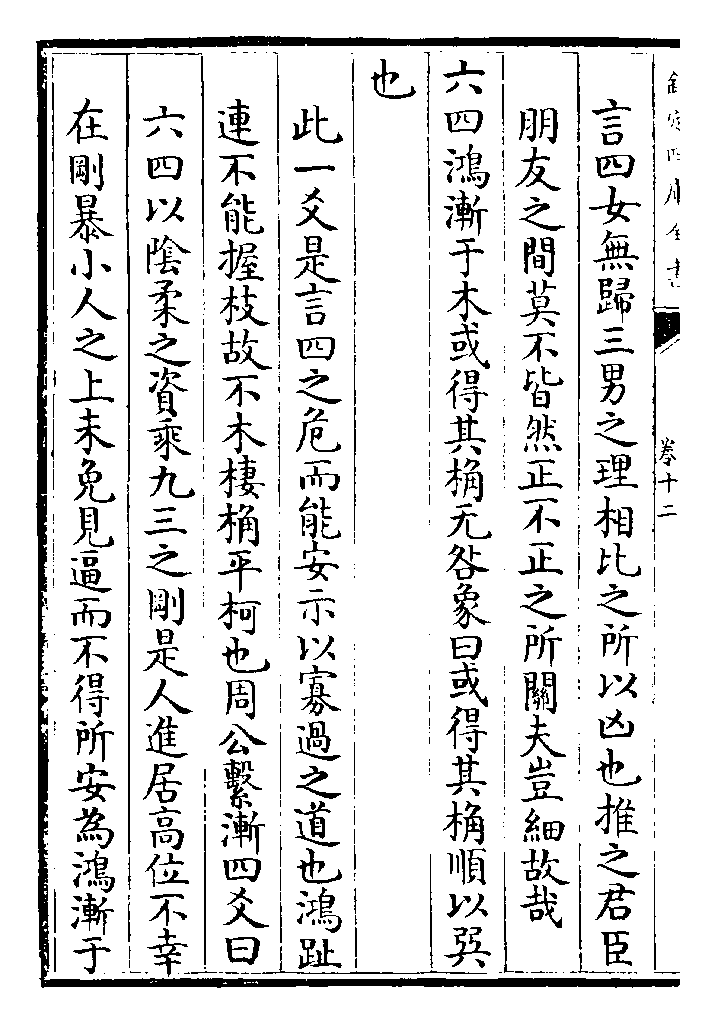 欽定四庫全書
卷十二
言四女無歸三男之理相比之所以凶也推之君臣
朋友之間莫不皆然正不正之所關夫豈細故哉
六四鴻漸于木或得其桷无咎象曰或得其桷順以巽
也
此一爻是言四之危而能安示以寡過之道也鴻趾
連不能握枝故不木棲桷平柯也周公繫漸四爻曰
六四以陰柔之資乘九三之剛是人進居高位不幸
在剛暴小人之上未免見逼而不得所安為鴻漸于